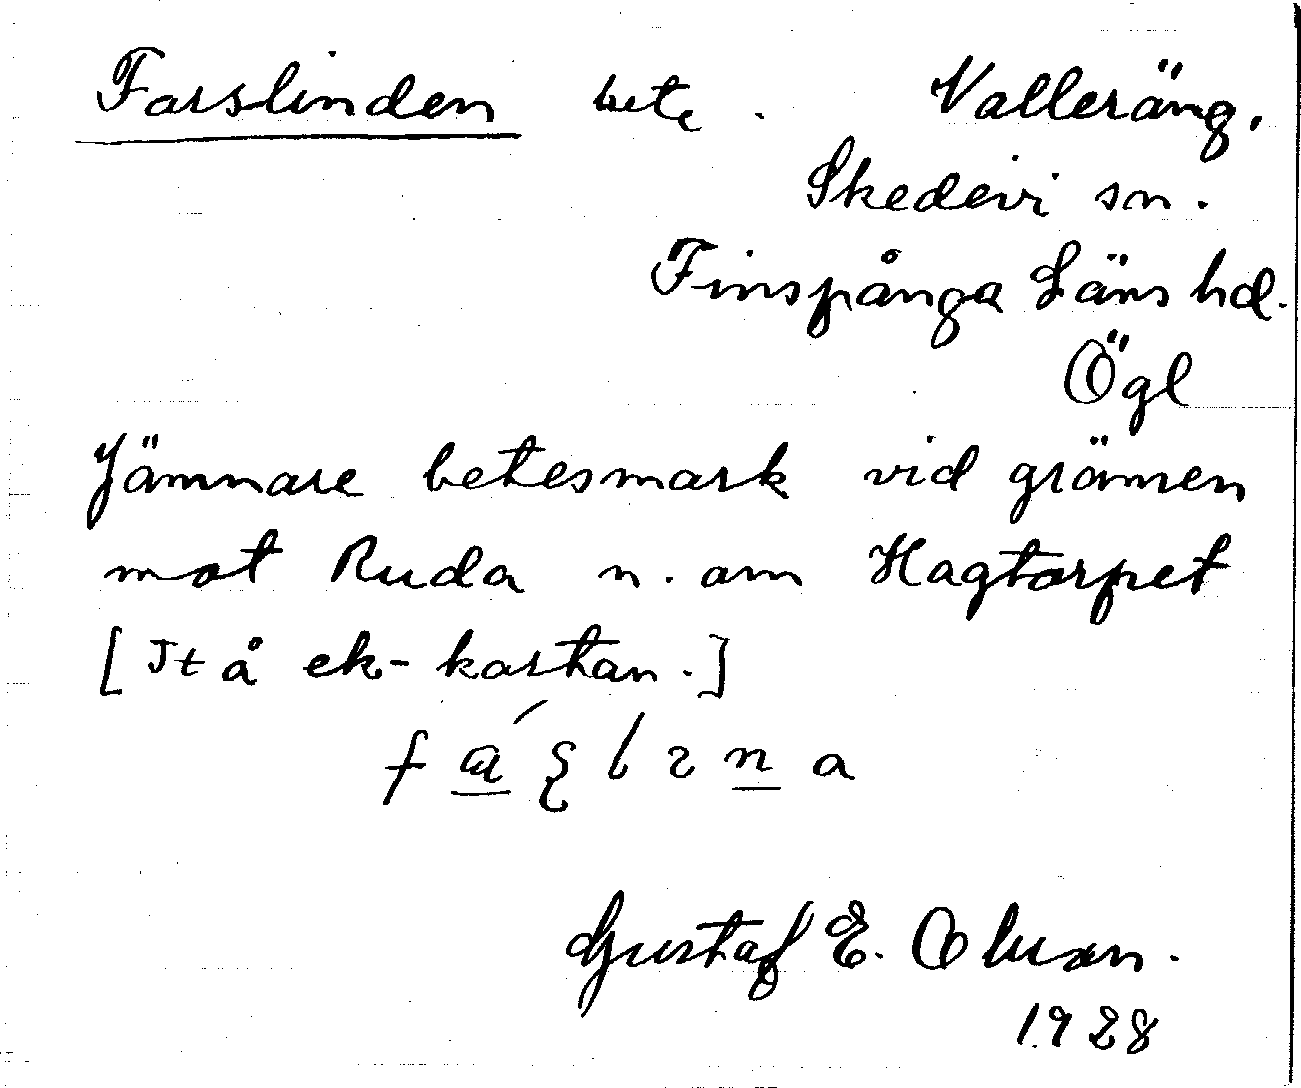 Farslinden bete. Valleräng,
Skedevi sn.
Finspånga Läns hd.
Ögl
Jämnare betesmark vid gränsen
mot Ruda n. om Hagtorpet
[It å ek-kartan.]
Gustaf E. Olsson.
1928